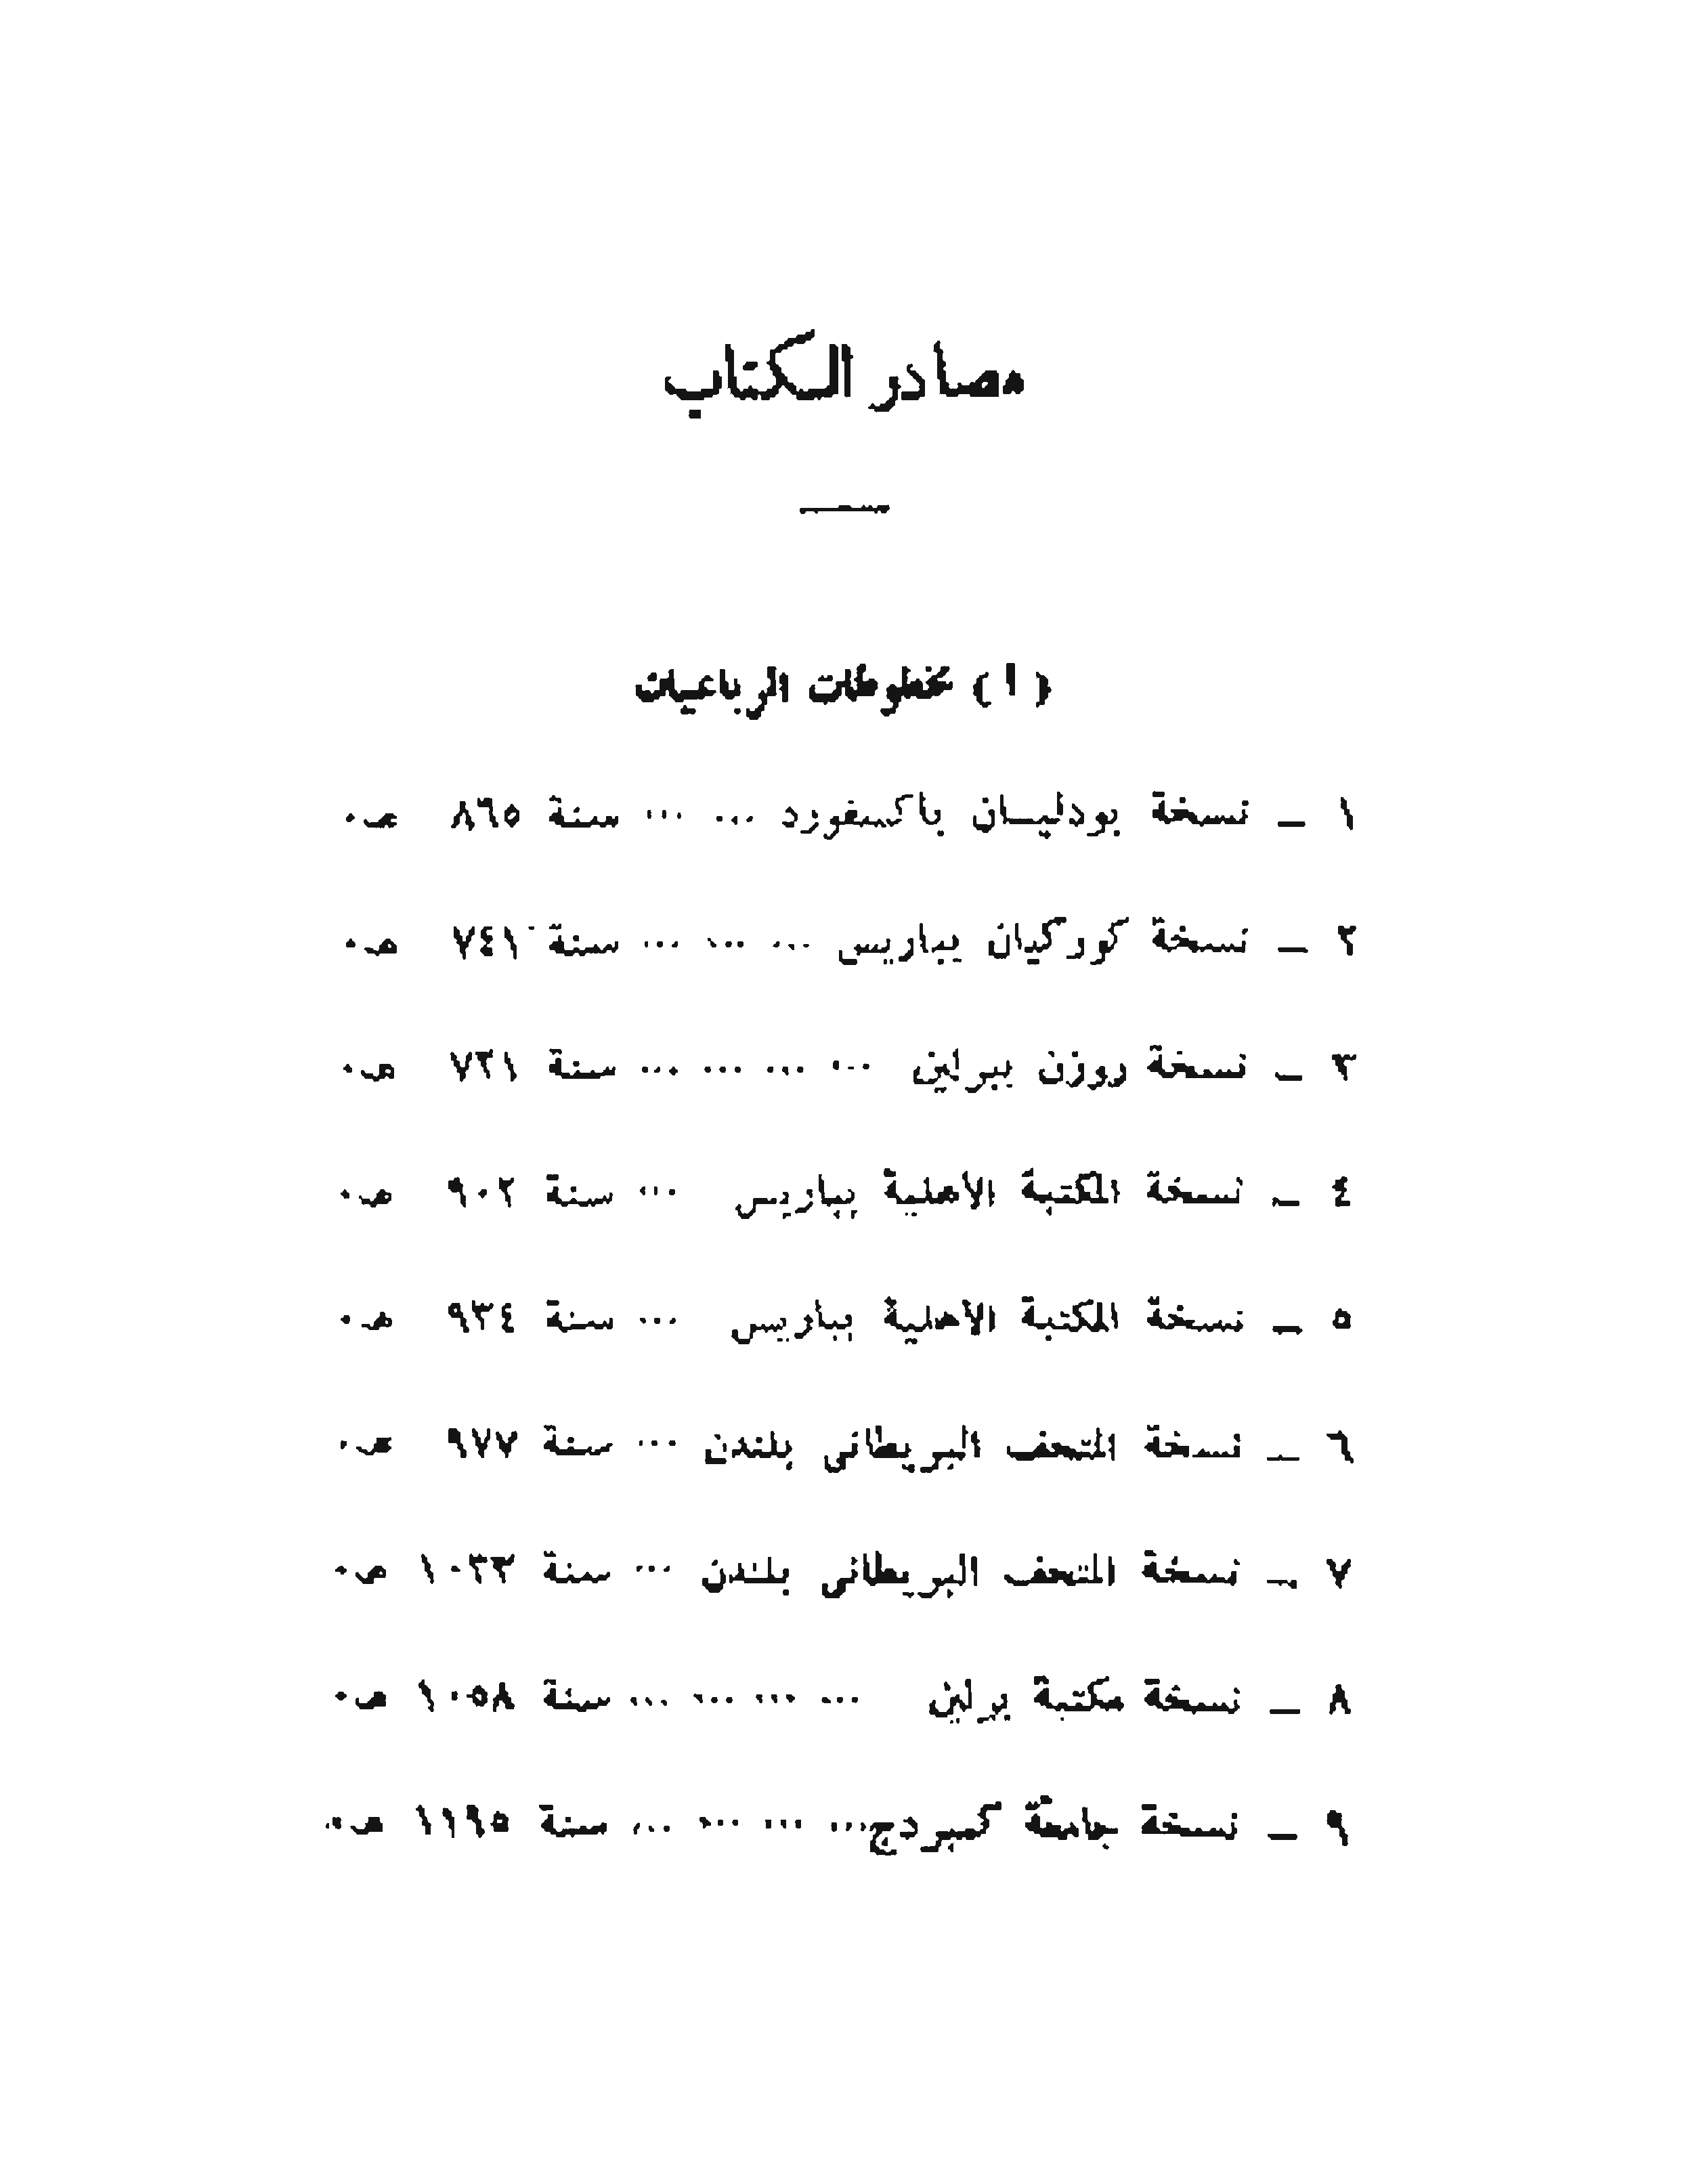 مصادر الكتاب
( ا ) مخطوطات الرباعيات
١ ــ نسخة بودليان باكسفورد ... ... سنة ٨٦٥ هـ.
٢ ــ نسخة كوركيان بباريس ... ... ... سنة ٧٤١ هـ.
٣ ــ نسخة روزن ببرلين ... ... ... ... سنة ٧٢١ هـ.
٤ ــ نسخة المكتبة الاهلية بباريس ... سنة ٩٠٢ هـ.
٥ ــ نسخة المكتبة الاهلية بباريس ... سنة ٩٣٤ هـ.
٦ ــ نسخة المتحف البريطانى بلندن ... سنة ٩٧٧ هـ.
٧ ــ نسخة المتحف البريطانى بلندن ... سنة ١٠٣٣ هـ.
٨ ــ نسخة مكتبة برلين ... ... ... ... سنة ١٠٥٨ هـ.
٩ ــ نسخة جامعة كمبردج ... ... ... ... سنة ١١٩٥ هـ.